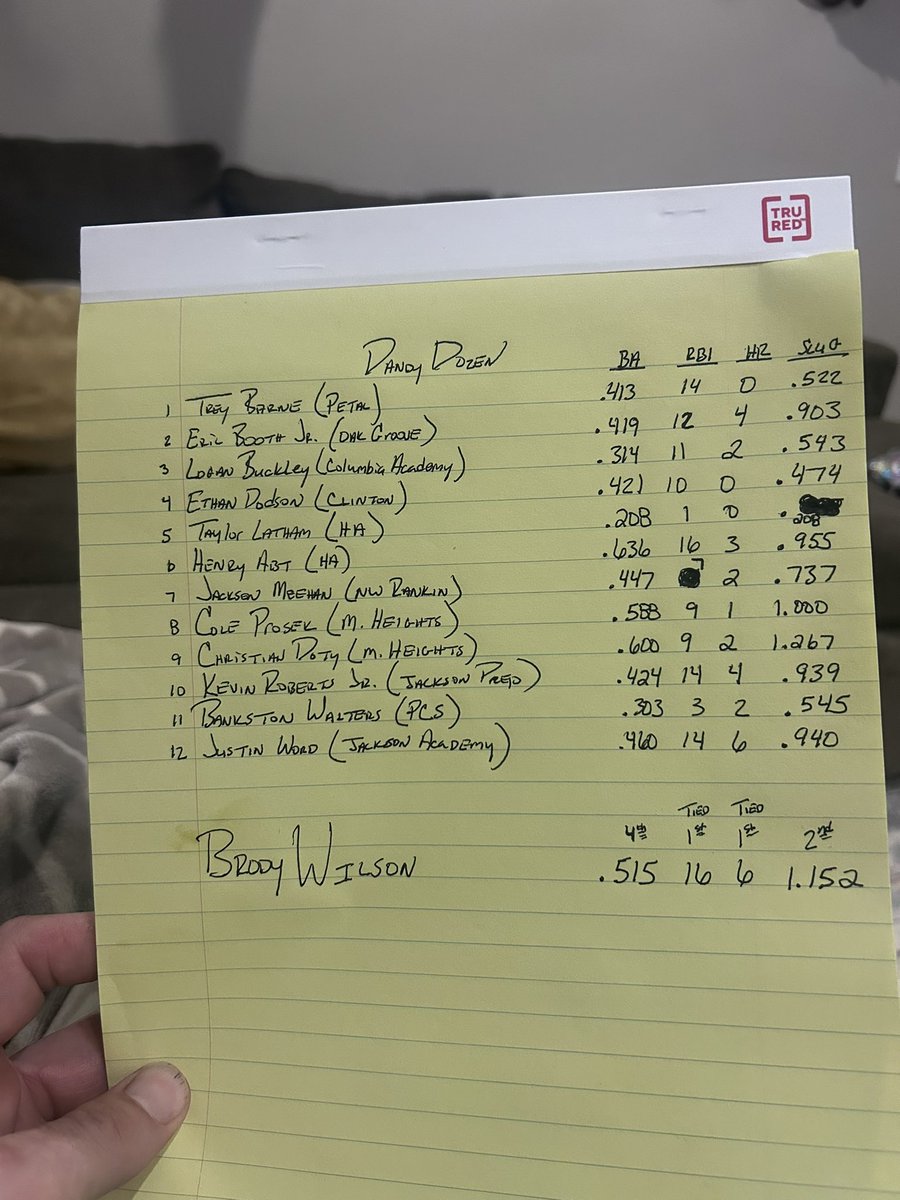 TRU
RED
DANDY DOZEN BA RBI HR SLUG
1 TREY BARNE (PETAL) .413 14 0 .522
2 ERIC BOOTH JR. (OAK GROVE) .419 12 4 .903
3 LOGAN BUCKLEY (Columbia Academy) .314 11 2 .543
4 ETHAN DODSON (CLINTON) .421 10 0 .474
5 TAYLOR LATHAM (HA) .208 1 0 .208
6 HENRY ABT (HA) .636 16 3 .955
7 JACKSON MEEHAN (NW RANKIN) .447 7 2 .737
8 COLE PROSEK (M. HEIGHTS) .588 9 1 1.000
9 CHRISTIAN DOTY (M. HEIGHTS) .600 9 2 1.267
10 KEVIN ROBERTS JR. (JACKSON PREP) .424 14 4 .939
11 BANKSTON WALTERS (PCS) .303 3 2 .545
12 JUSTIN WORD (JACKSON ACADEMY) .460 14 6 .940
TIED TIED
4th 1st 1st 2nd
BRODY WILSON .515 16 6 1.152